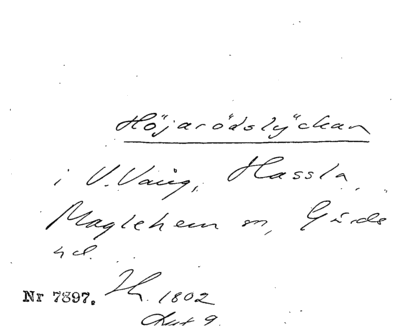 Höjarödslyckan
i V. Vång, Hassla,
Maglehem sn, Gärds
hd.
Nr 7397. 1802